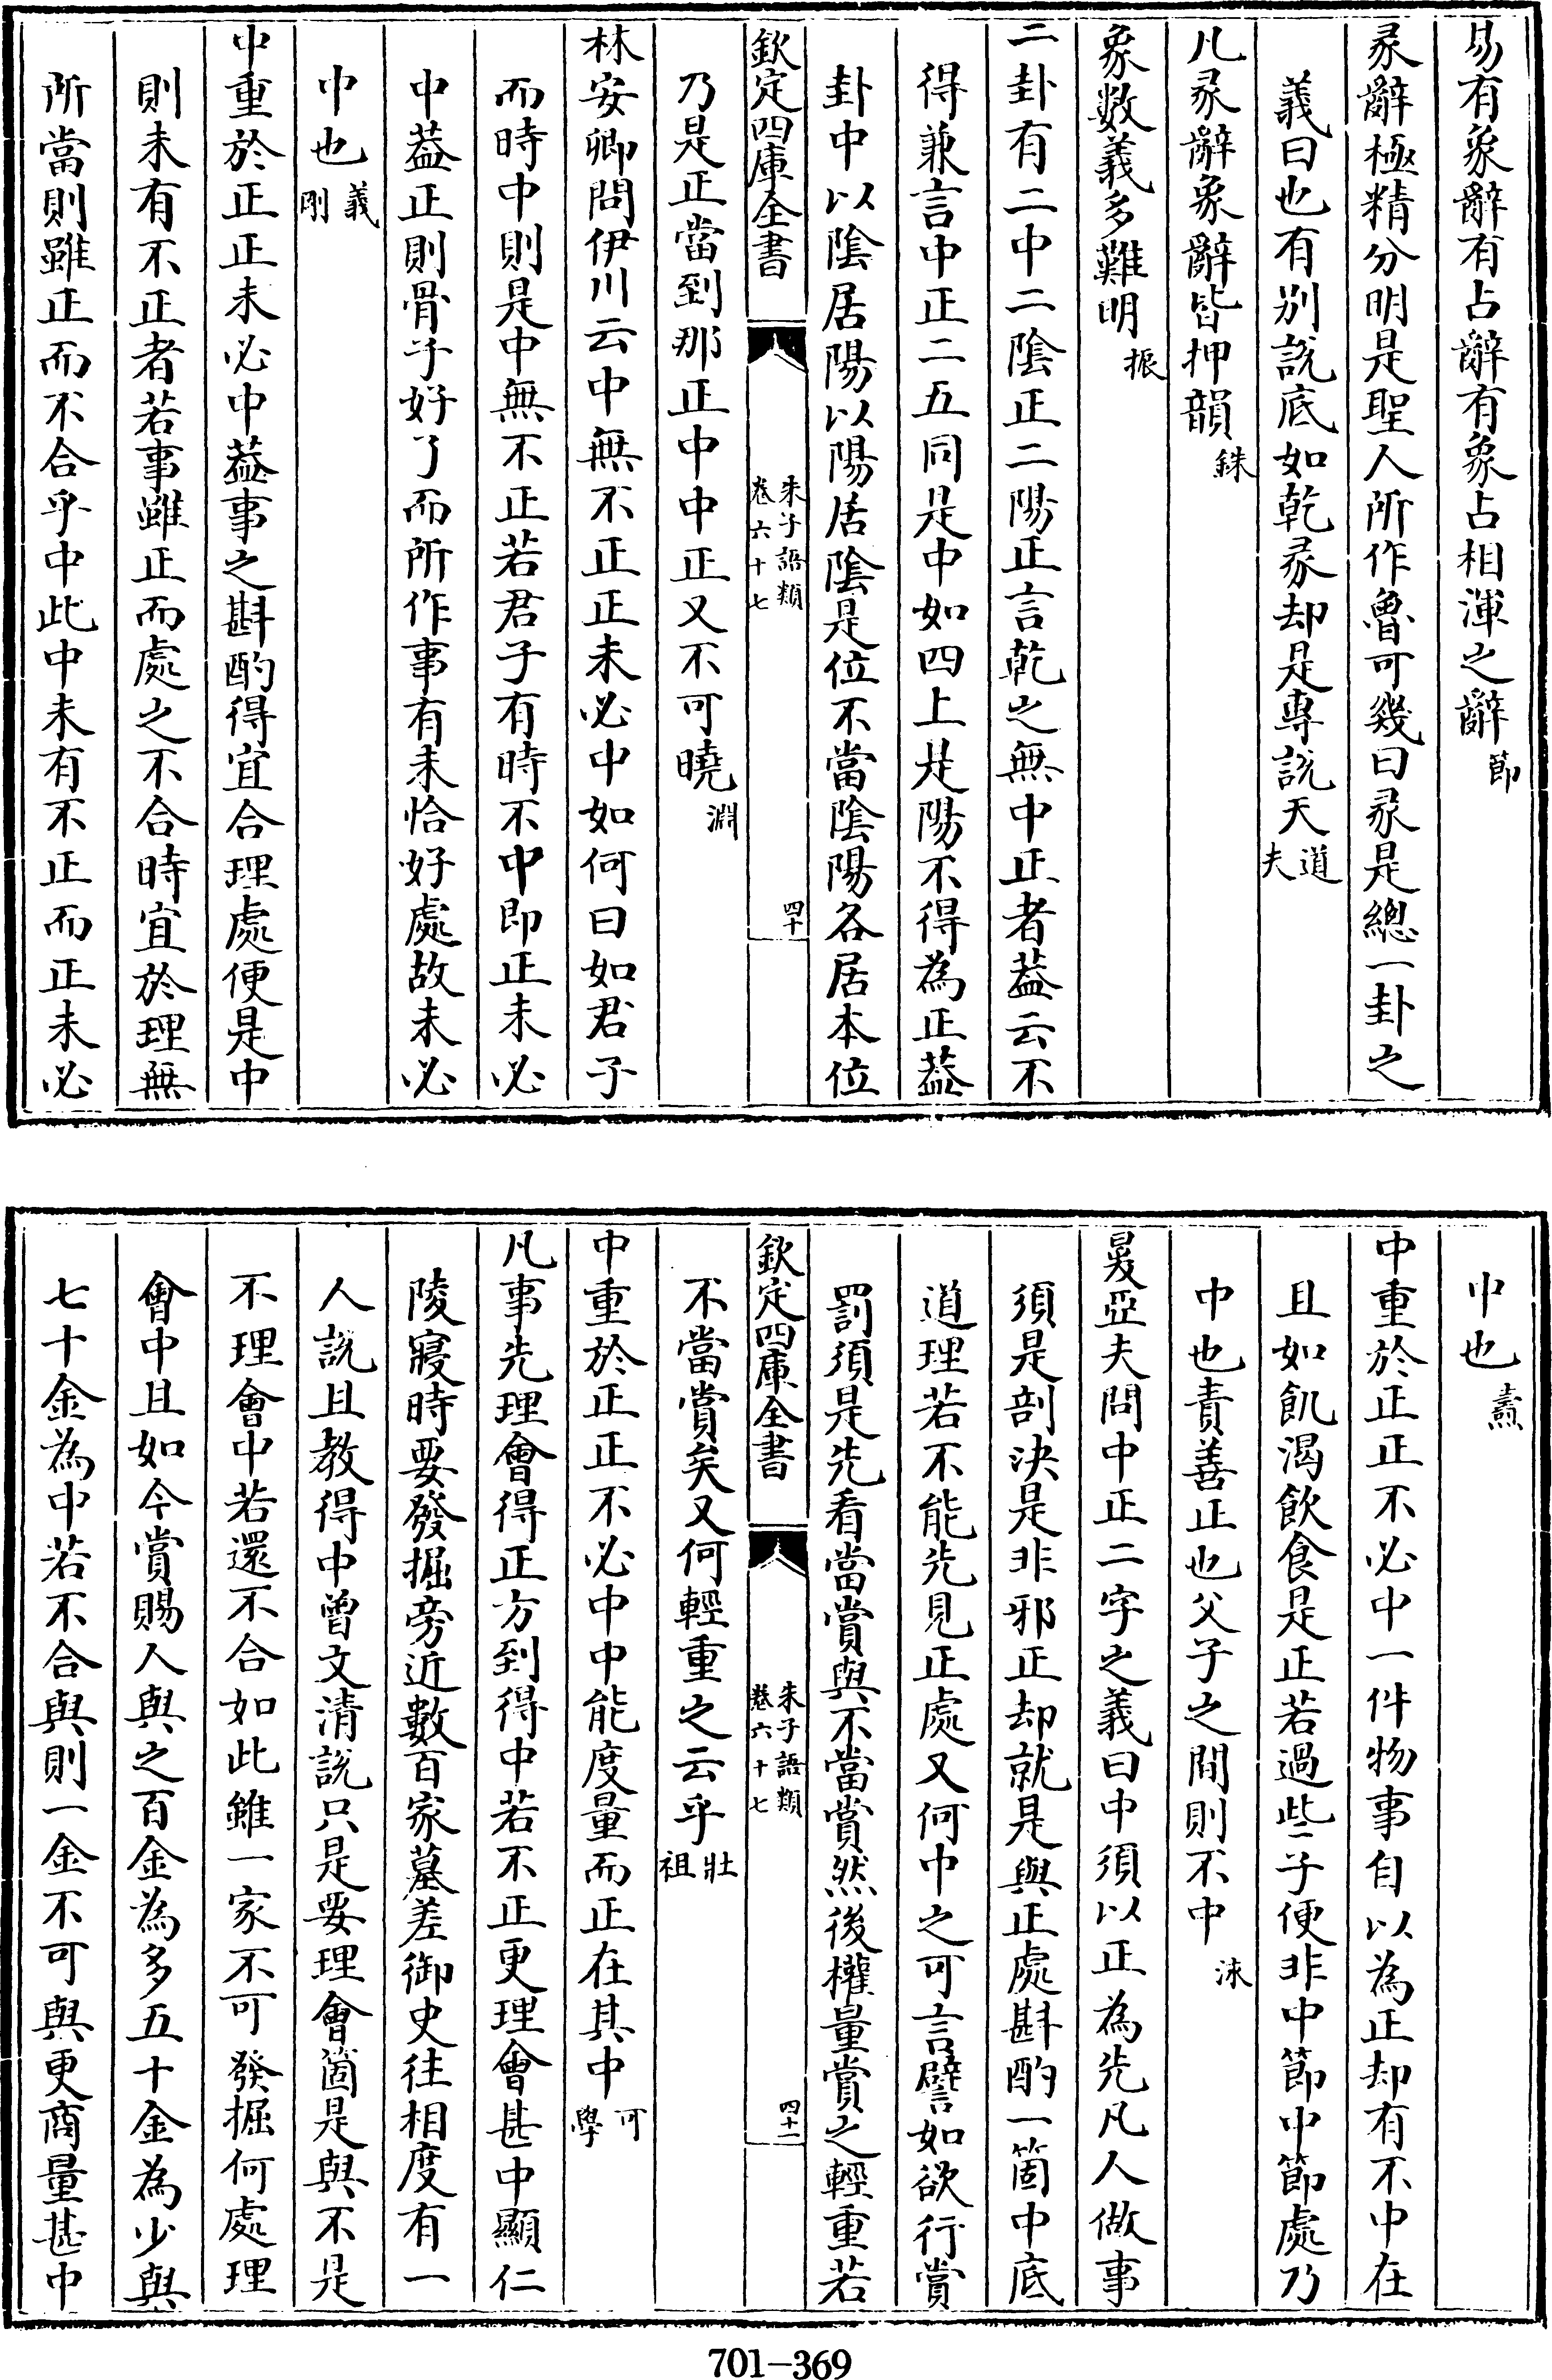 易有象辭有占辭有象占相渾之辭節
彖辭極精分明是聖人所作魯可幾曰彖是總一卦之
義曰也有別說底如乾彖却是專說天道夫
凡彖辭象辭皆押韻銖
象數義多難明振
二卦有二中二陰正二陽正言乾之無中正者葢云不
得兼言中正二五同是中如四上是陽不得為正葢
卦中以陰居陽以陽居陰是位不當陰陽各居本位
欽定四庫全書
朱子語類
卷六十七
四十
乃是正當到那正中中正又不可曉淵
林安卿問伊川云中無不正正未必中如何曰如君子
而時中則是中無不正若君子有時不中即正未必
中葢正則骨子好了而所作事有未恰好處故未必
中也義剛
中重於正正未必中葢事之斟酌得宜合理處便是中
則未有不正者若事雖正而處之不合時宜於理無
所當則雖正而不合乎中此中未有不正而正未必
中也燾
中重於正正不必中一件物事自以為正却有不中在
且如飢渴飲食是正若過些子便非中節中節處乃
中也責善正也父子之間則不中泳
㬊亞夫問中正二字之義曰中須以正為先凡人做事
須是剖決是非邪正却就是與正處斟酌一箇中底
道理若不能先見正處又何中之可言譬如欲行賞
罰須是先看當賞與不當賞然後權量賞之輕重若
欽定四庫全書
朱子語類
卷六十七
四十一
不當賞矣又何輕重之云乎壯祖
中重於正正不必中中能度量而正在其中可學
凡事先理會得正方到得中若不正更理會甚中顯仁
陵寢時要發掘旁近數百家墓差御史往相度有一
人說且教得中曾文清說只是要理會箇是與不是
不理會中若還不合如此雖一家不可發掘何處理
會中且如今賞賜人與之百金為多五十金為少與
七十金為中若不合與則一金不可與更商量甚中
701-369